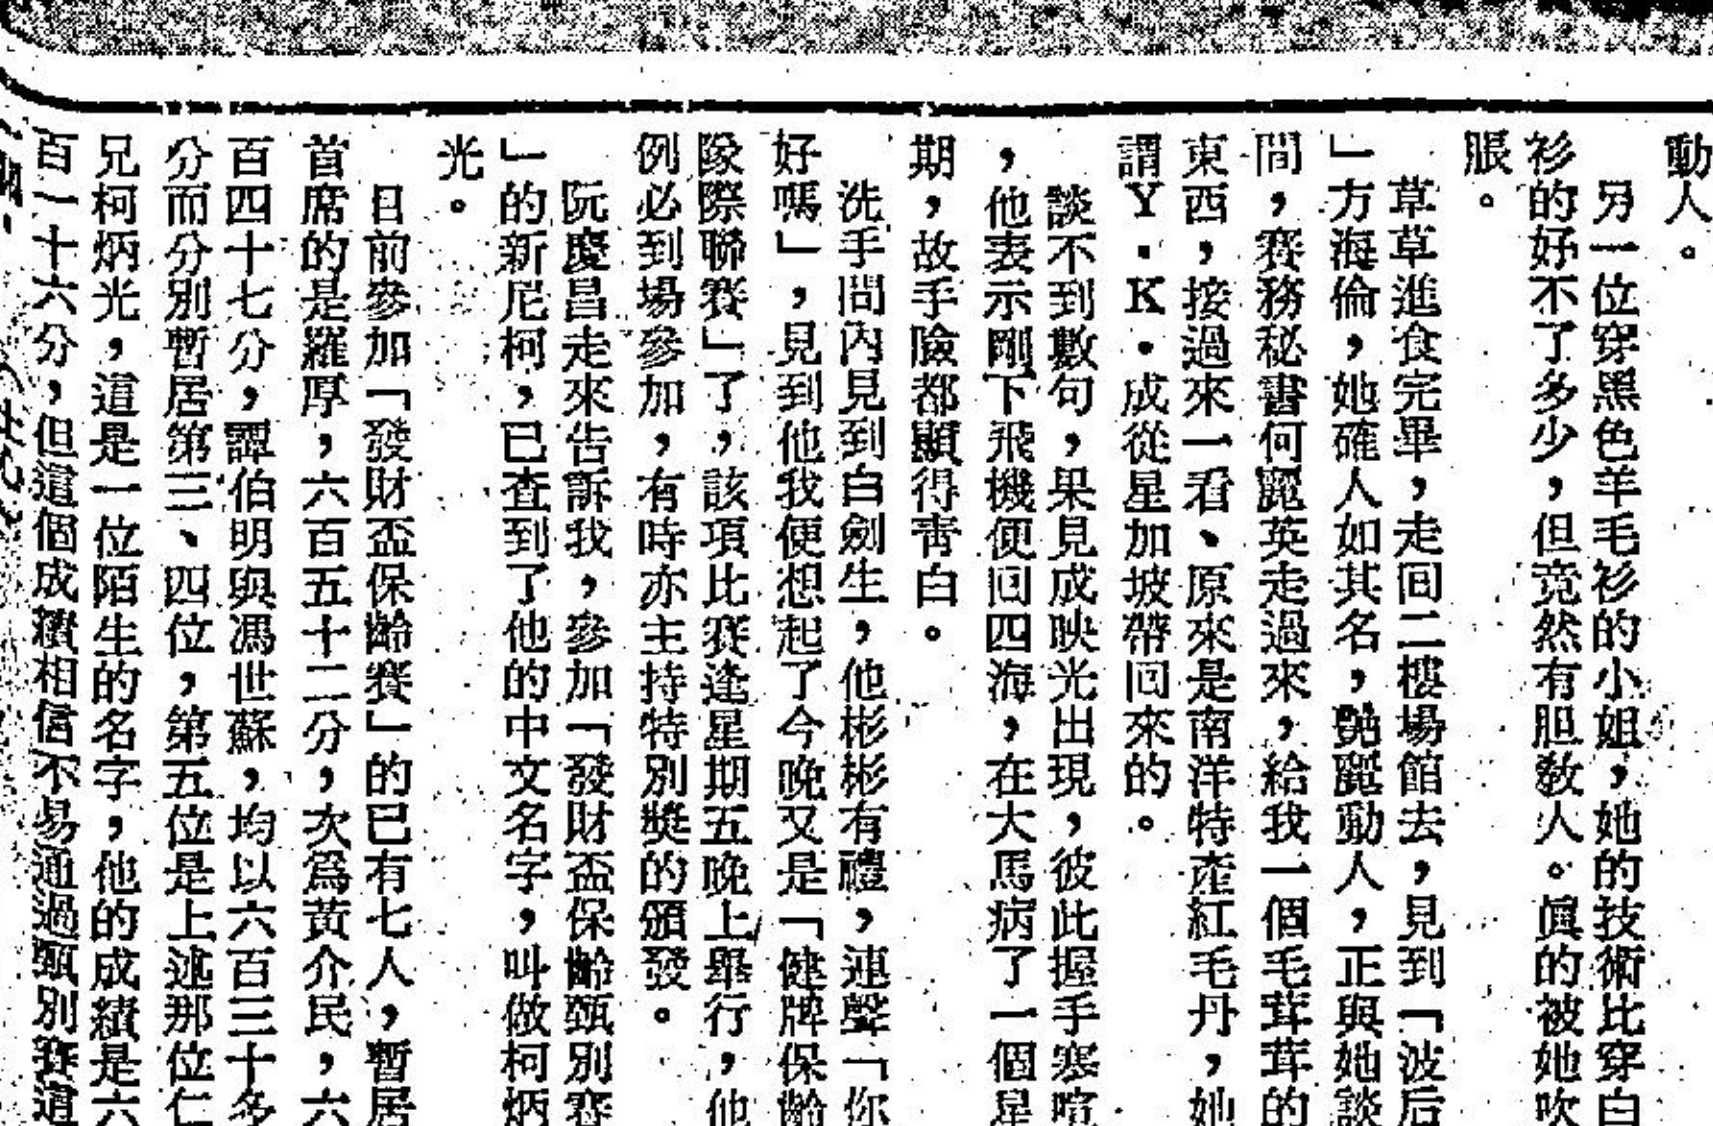 動人。
另一位穿黑色羊毛衫的小姐，她的技術比穿白
衫的好不了多少，但竟然有胆敎人。眞的被她吹
脹。
草草進食完畢，走回二樓場館去，見到「波后
」方海倫，她確人如其名，艷麗動人，正與她談
間，賽務秘書何麗英走過來，給我一個毛茸茸的
東西，接過來一看、原來是南洋特產紅毛丹，她
謂Y．K．成從星加坡帶回來的。
談不到數句，果見成映光出現，彼此握手寒喧
，他表示剛下飛機便回四海，在大馬病了一個星
期，故手險都顯得青白。
洗手間內見到白劍生，他彬彬有禮，連聲「你
好嗎」，見到他我便想起了今晚又是「健牌保齡
隊際聯賽」了，該項比賽逢星期五晚上舉行，他
例必到場參加，有時亦主持特別獎的頒發。
阮慶昌走來告訴我，參加「發財盃保齡甄別賽
」的新尼柯，已查到了他的中文名字，叫做柯炳
光。
目前參加「發財盃保齡賽」的已有七人，暫居
首席的是羅厚，六百五十二分，次爲黃介民，六
百四十七分，譚伯明與馮世蘇，均以六百三十多
分而分別暫居第三、四位，第五位是上述那位仁
兄柯炳光，這是一位陌生的名字，他的成績是六
百一十六分，但這個成績相信不易通過甄別賽這